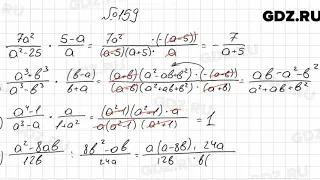 GDZ.RU
№159
7a²/(a²-25) · (5-a)/a = 7a²·(-(a-5))/((a-5)(a+5)·a) = -7/(a+5)
(a³-b³)/(a³+b³) · (b-a)/(b+a) = (a-b)(a²-ab+b²)·(-(a-b))/((a-b)(a²+ab+b²)(a+b)) = (ab-a²-b²)/(a²+ab+b²)
(a⁴-1)/(a³-a) · a/(1+a²) = (a²-1)(a²+1)·a/(a(a²-1)(a²+1)) = 1
(a²-8ab)/12b : (8b²-ab)/24a = a(a-8b)·24a/(12b·b(
GDZ.RU